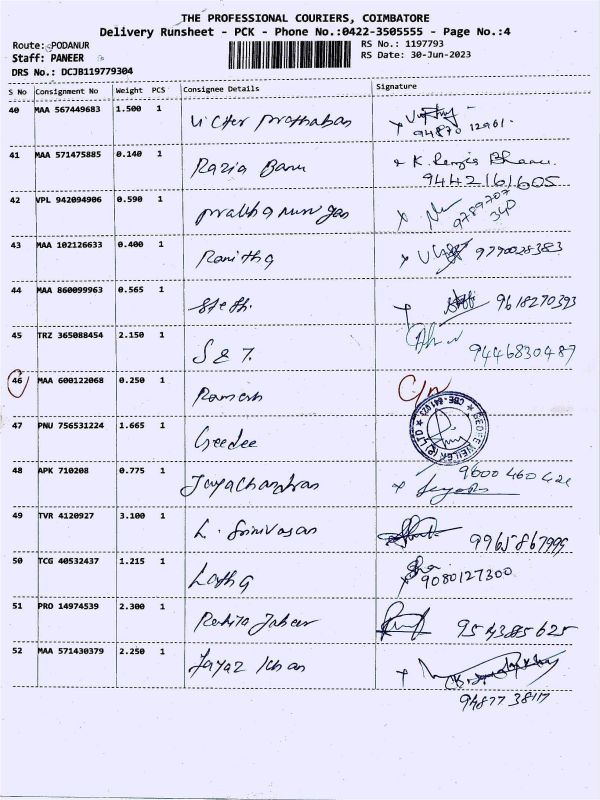 THE PROFESSIONAL COURIERS, COIMBATORE
Delivery Runsheet - PCK - Phone No.:0422-3505555 - Page No.:4
Route: PODANUR RS No.: 1197793
Staff: PANEER RS Date: 30-Jun-2023
DRS No.: DCJB119779304
S No Consignment No Weight PCS Consignee Details Signature
40 MAA 567449683 1.500 1 Victer prathaban
94870 12961
41 MAA 571475885 0.140 1 Razia Banu K. Razia Bhanu.
9442161605
42 VPL 942094906 0.590 1 9789707
340
43 MAA 102126633 0.400 1 Ranitha 9790028383
44 MAA 860099963 0.565 1 Steffi 9618270393
45 TRZ 365088454 2.150 1 S & T. 9446830487
46 MAA 600122068 0.250 1 Ramesh
47 PNU 756531224 1.665 1 Geedee
48 APK 710208 0.775 1 Jayachandran 9600 460 42
49 TVR 4120927 3.100 1 L. Srinivasan 9965867999
50 TCG 40532437 1.215 1 Latha 9080127300
51 PRO 14974539 2.300 1 9543885625
52 MAA 571430379 2.250 1 Fayaz Khan
94877 38117